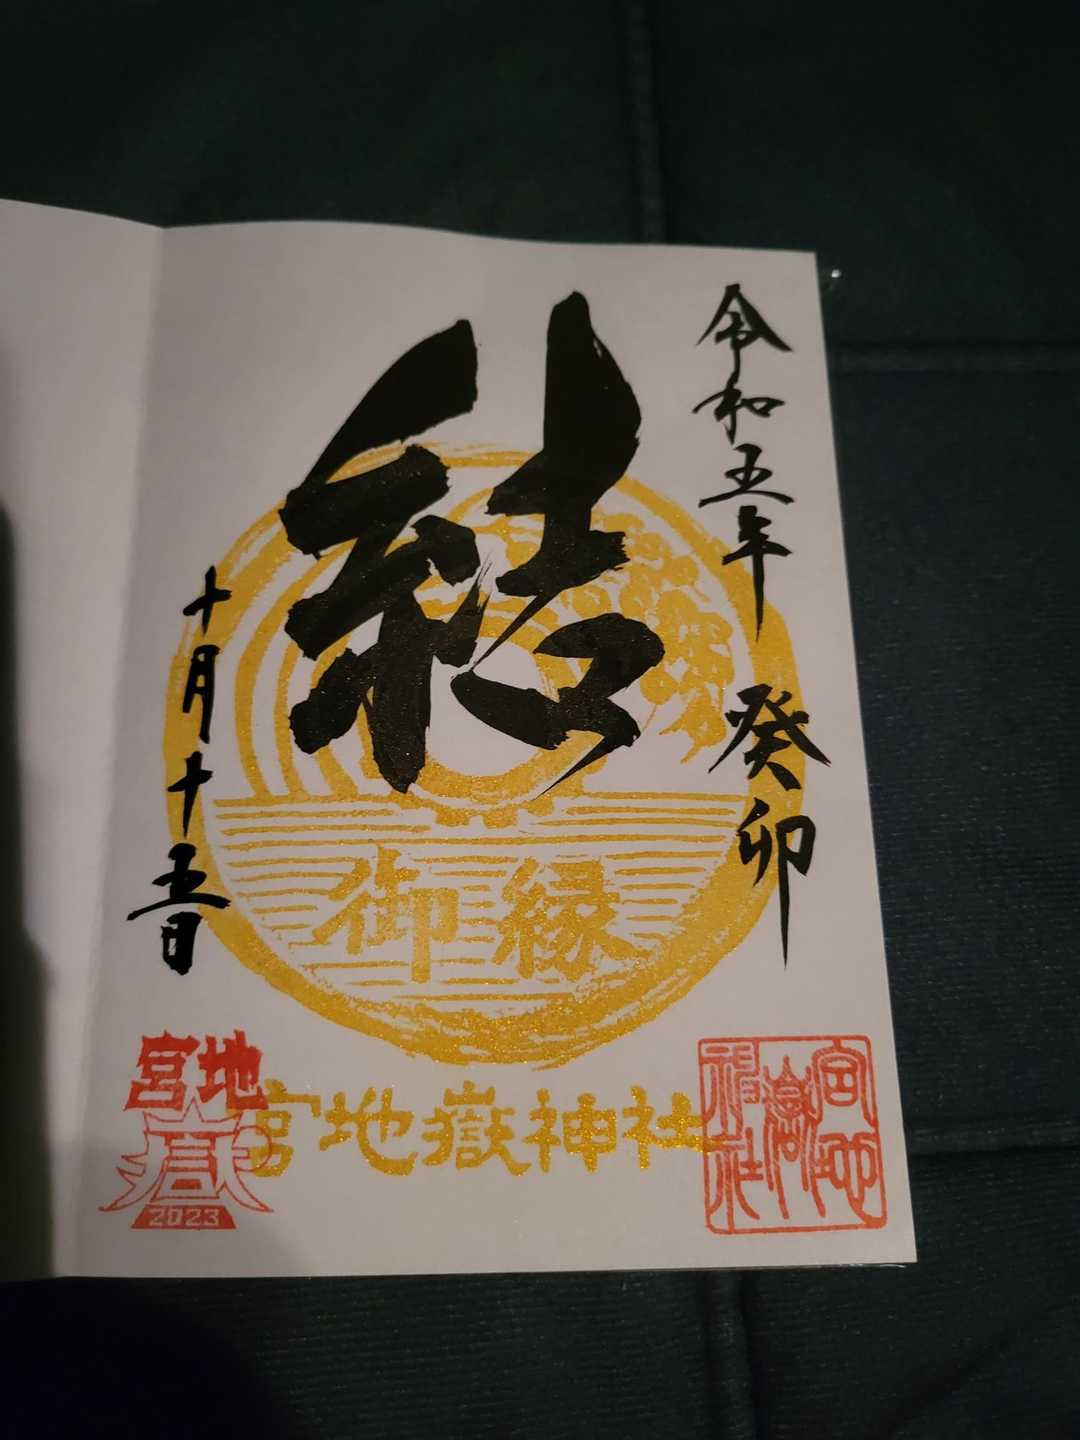 令和五年 癸卯
結
十月十五日
御縁
宮地嶽神社
宮地
嶽
2023
宮地
嶽
神社